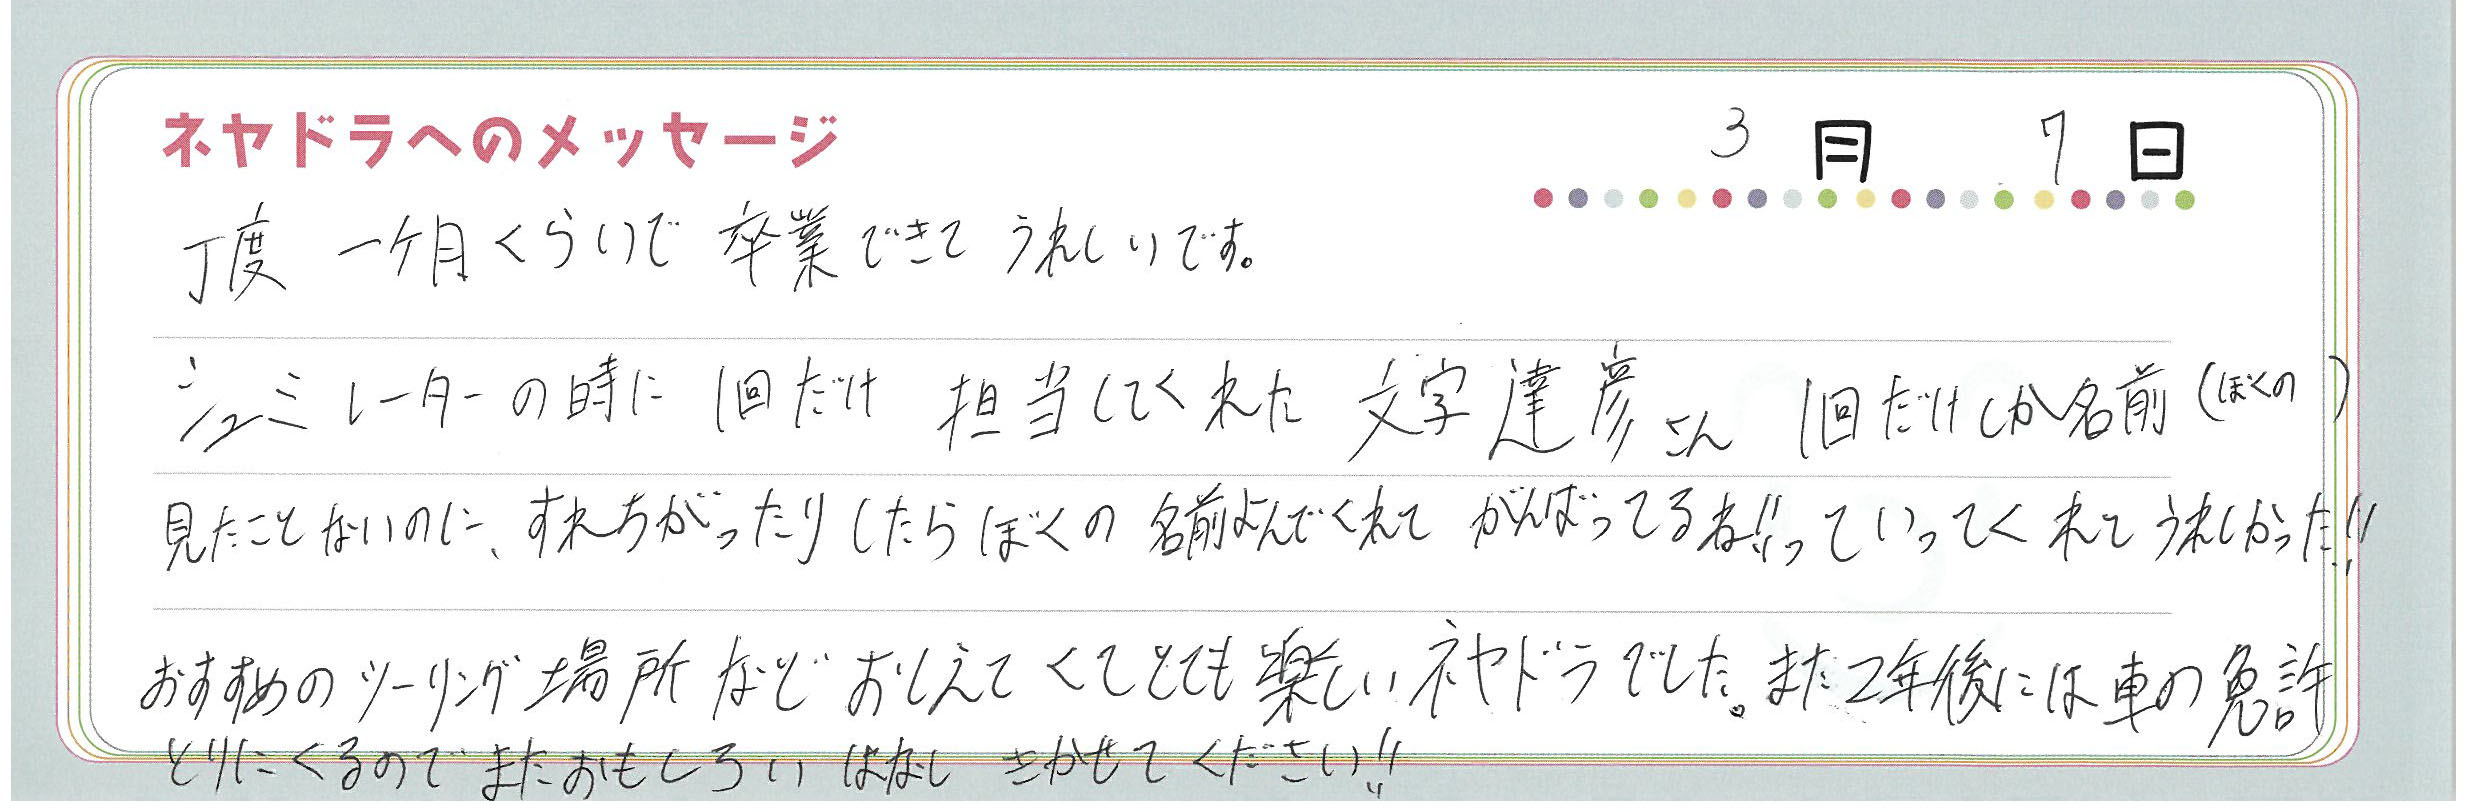 ネヤドラへのメッセージ
3月 7日
丁度 一ケ月くらいで 卒業できて うれしいです。
シュミレーターの時に 1回だけ 担当してくれた 文字達彦さん 1回だけしか名前(ぼくの)
見たことないのに、すれちがったりしたらぼくの 名前よんでくれて がんばってるね!!っていってくれて うれしかった!!
おすすめのツーリング場所 など おしえてくてとても楽しいネヤドラでした。また2年後には車の免許
とりにくるのでまたおもしろい はなし きかせてください!!